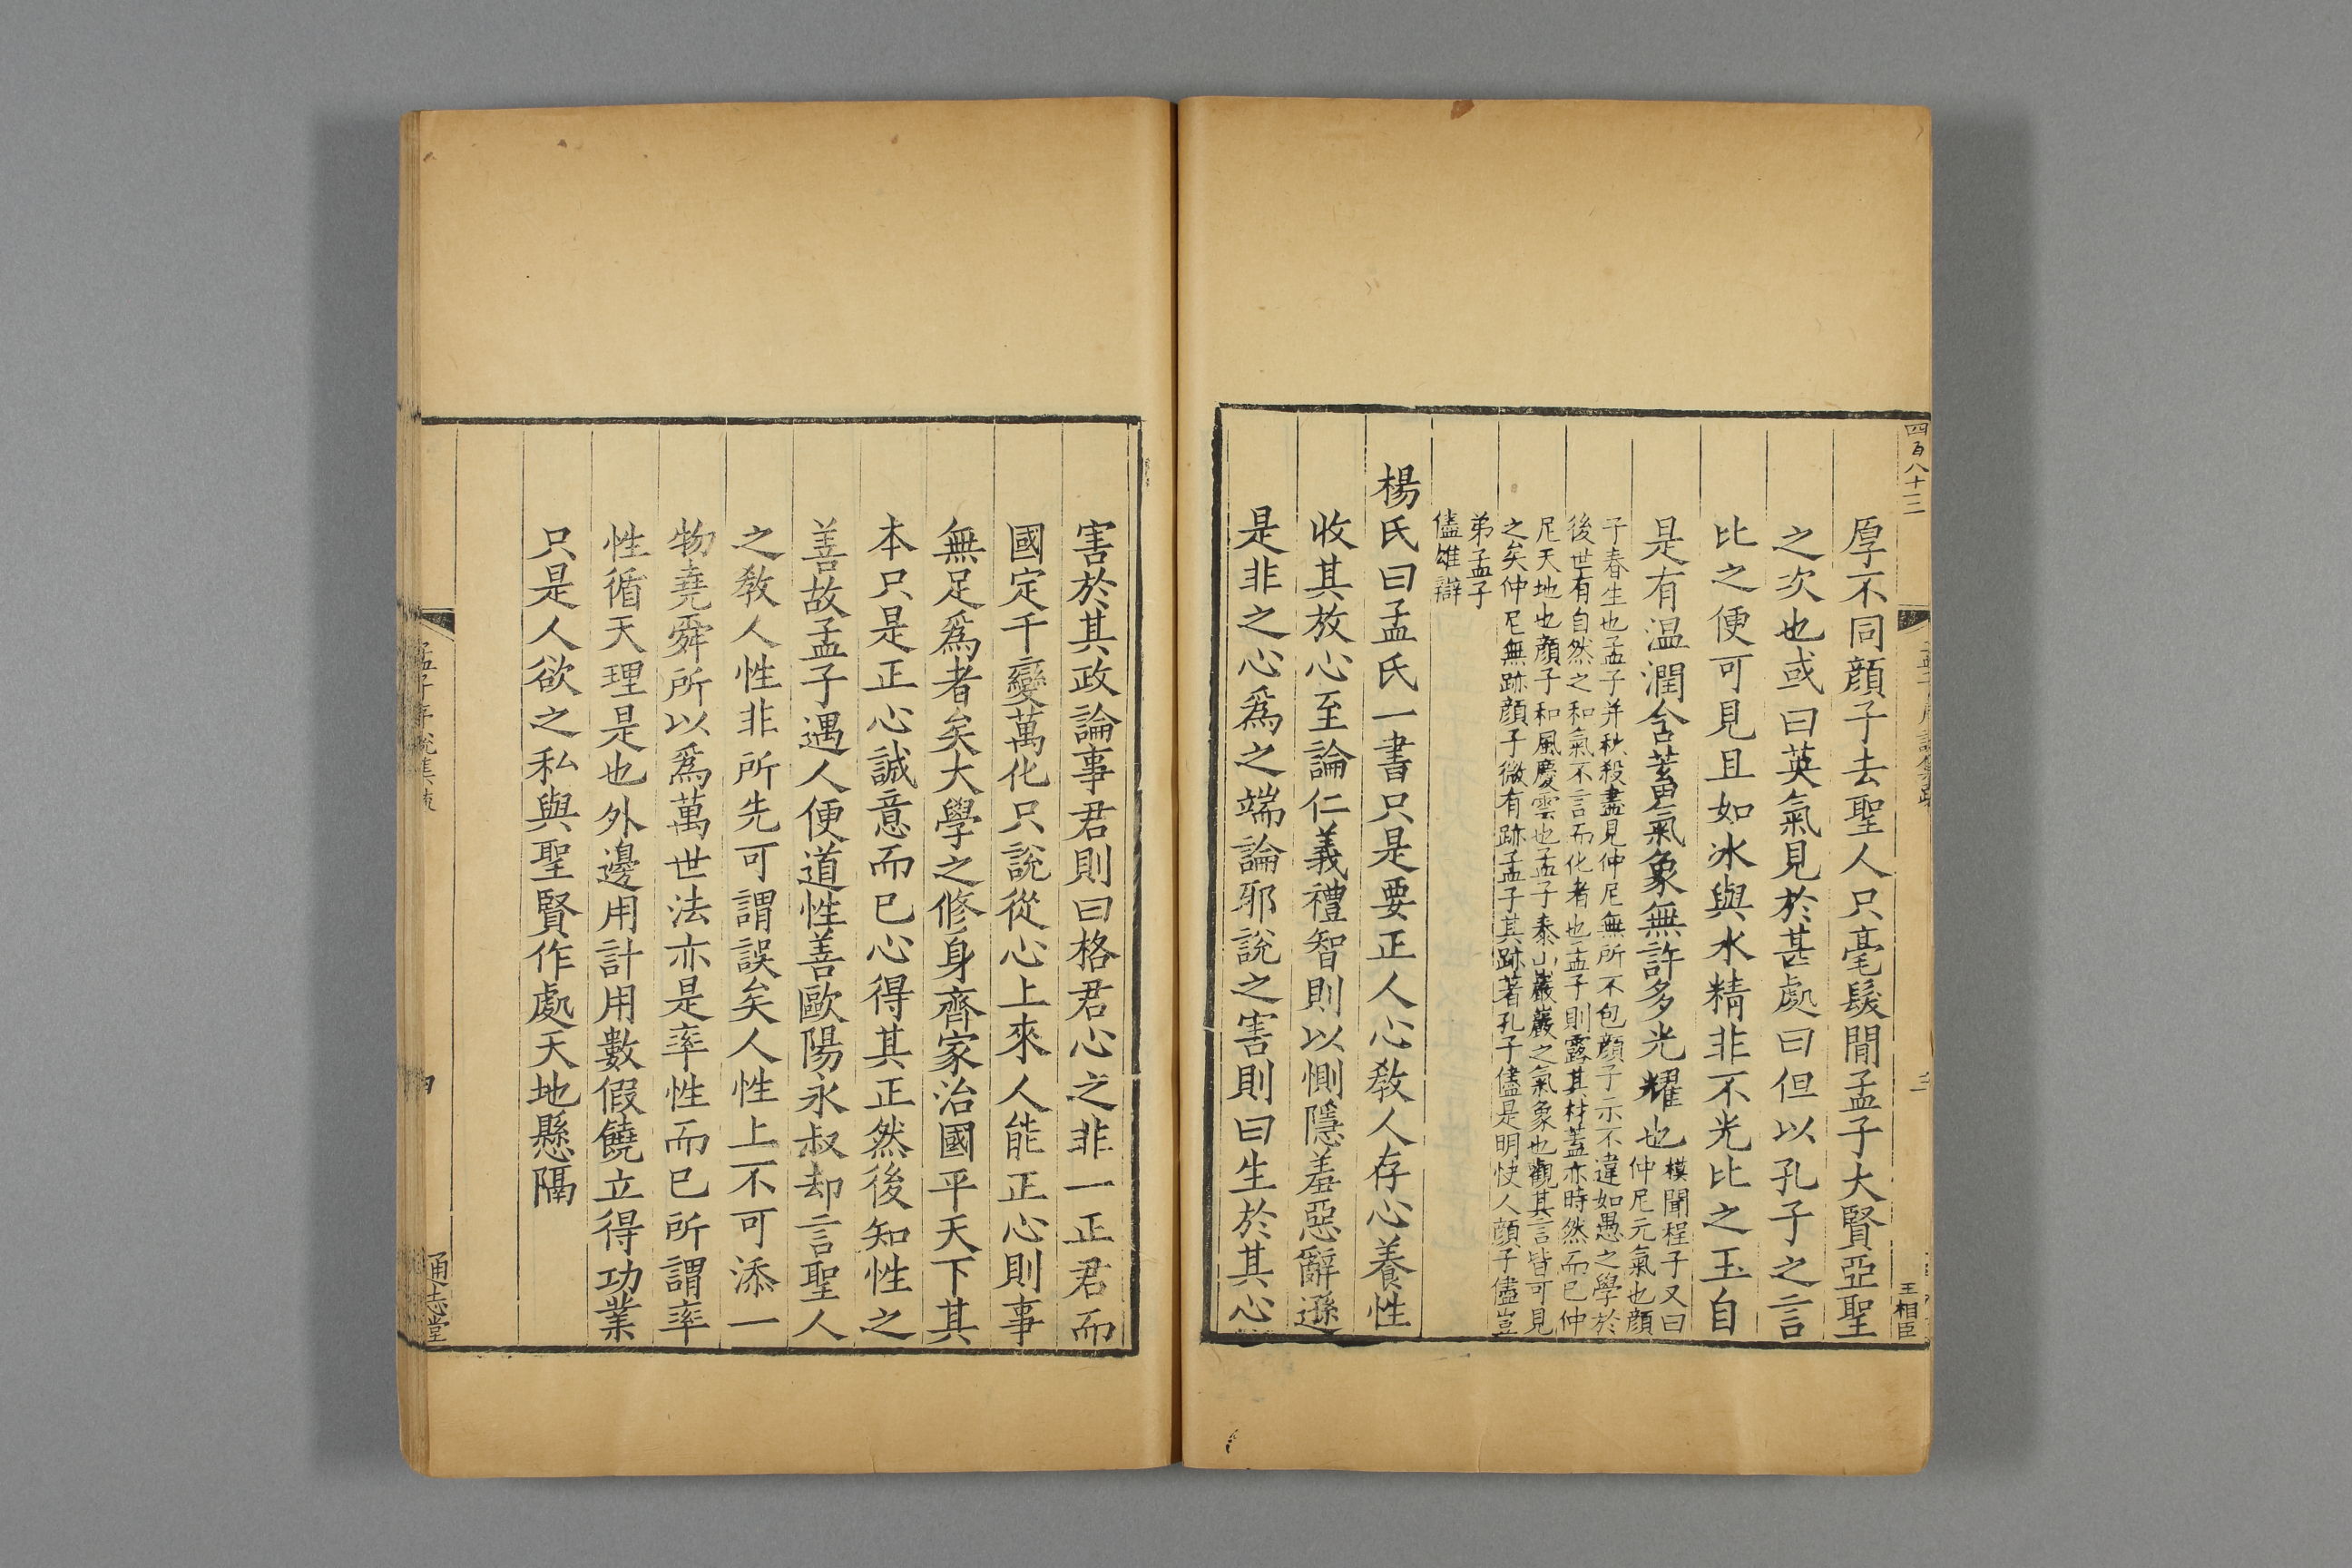 四百八十三
三
王相臣
厚不同顔子去聖人只毫髮閒孟子大賢亞聖
之次也或曰英氣見於甚處曰但以孔子之言
比之便可見且如冰與水精非不光比之玉自
是有温潤含蓄氣象無許多光耀也模聞程子又曰
仲尼元氣也顔
子春生也孟子并秋殺盡見仲尼無所不包顔子示不違如愚之學於
後世有自然之和氣不言而化者也孟子則露其材蓋亦時然而已仲
尼天地也顔子和風慶雲也孟子泰山巖巖之氣象也觀其言皆可見
之矣仲尼無跡顔子微有跡孟子其跡著孔子儘是明快人顔子儘豈
弟孟子
儘雄辯
楊氏曰孟氏一書只是要正人心敎人存心養性
收其放心至論仁義禮智則以惻隱羞惡辭遜
是非之心爲之端論邪說之害則曰生於其心
害於其政論事君則曰格君心之非一正君而
國定千變萬化只說從心上來人能正心則事
無足爲者矣大學之修身齊家治國平天下其
本只是正心誠意而已心得其正然後知性之
善故孟子遇人便道性善歐陽永叔却言聖人
之敎人性非所先可謂誤矣人性上不可添一
物堯舜所以爲萬世法亦是率性而已所謂率
性循天理是也外邊用計用數假饒立得功業
只是人欲之私與聖賢作處天地懸隔
孟子序說集疏
四
通志堂